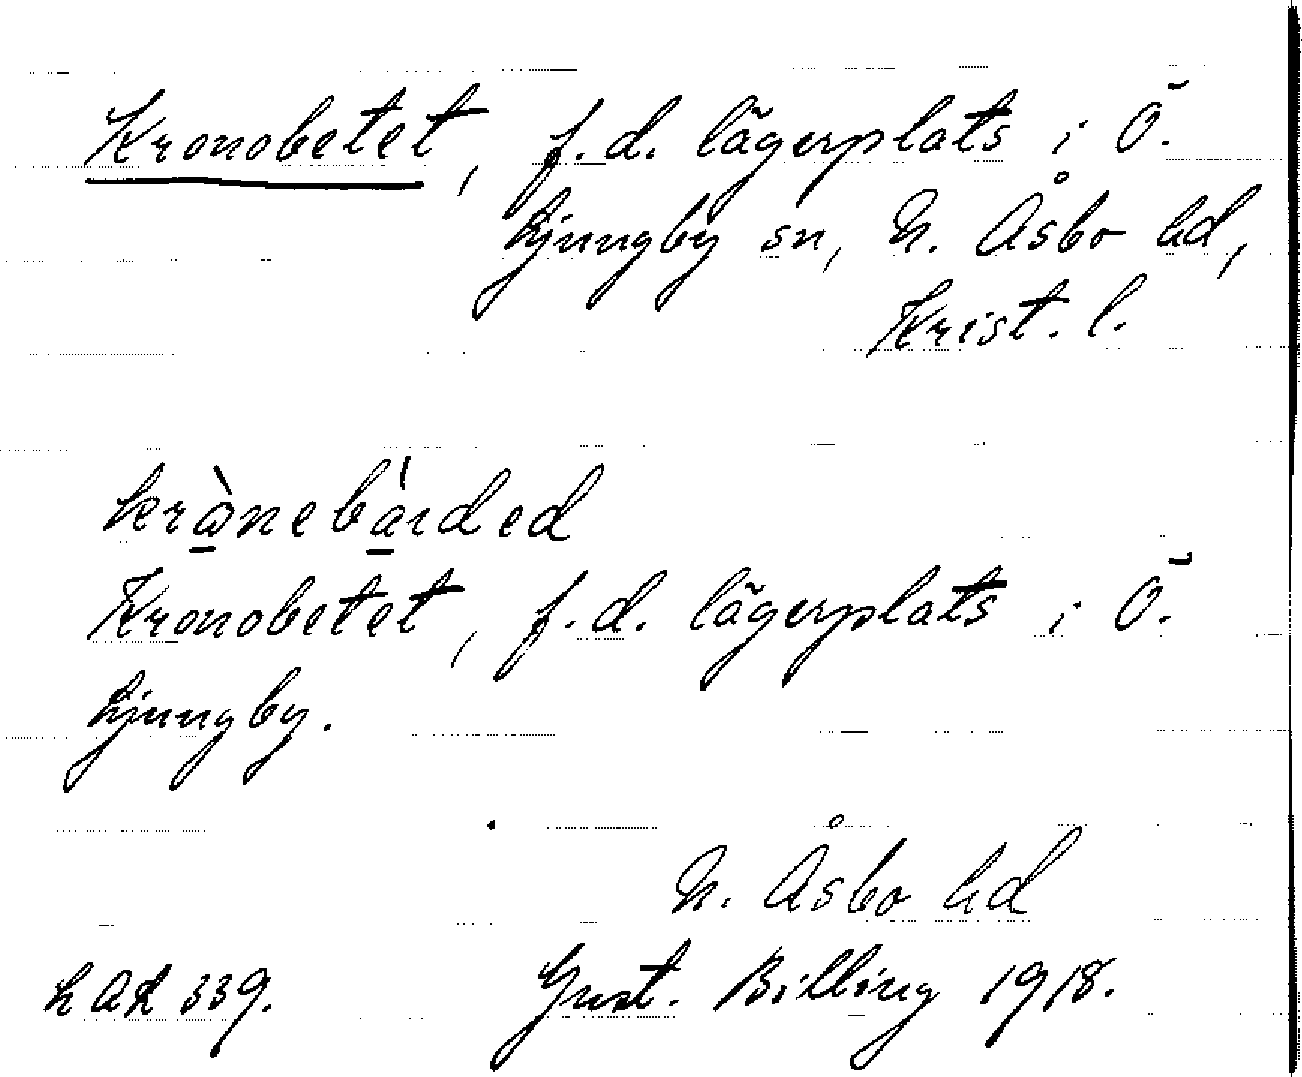 Kronobetet, f.d. lägerplats i Ö.
Ljungby sn, N. Åsbo hd,
Krist. l.
krànebáıded
Kronobetet, f.d. lägerplats i Ö.
Ljungby.
N. Åsbo hd
LAA 339. Gust. Billing 1918.